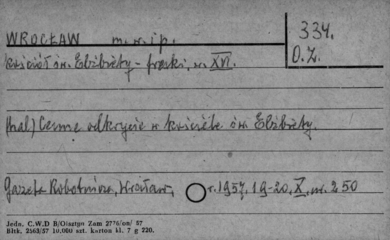 WROCŁAW m. w. i p.
334.
O.Z.
Kościół św. Elżbiety - freski, w. XVI.
(hal) Cenne odkrycie w kościele św. Elżbiety.
Gazeta Robotnicza, Wrocław, r. 1957, 19-20, X, nr. 250
Jedn. C.W.D B/Olsztyn Zam 2776/on/ 57
Bltk. 2563/57 10.000 szt. karton kl. 7 g 220.